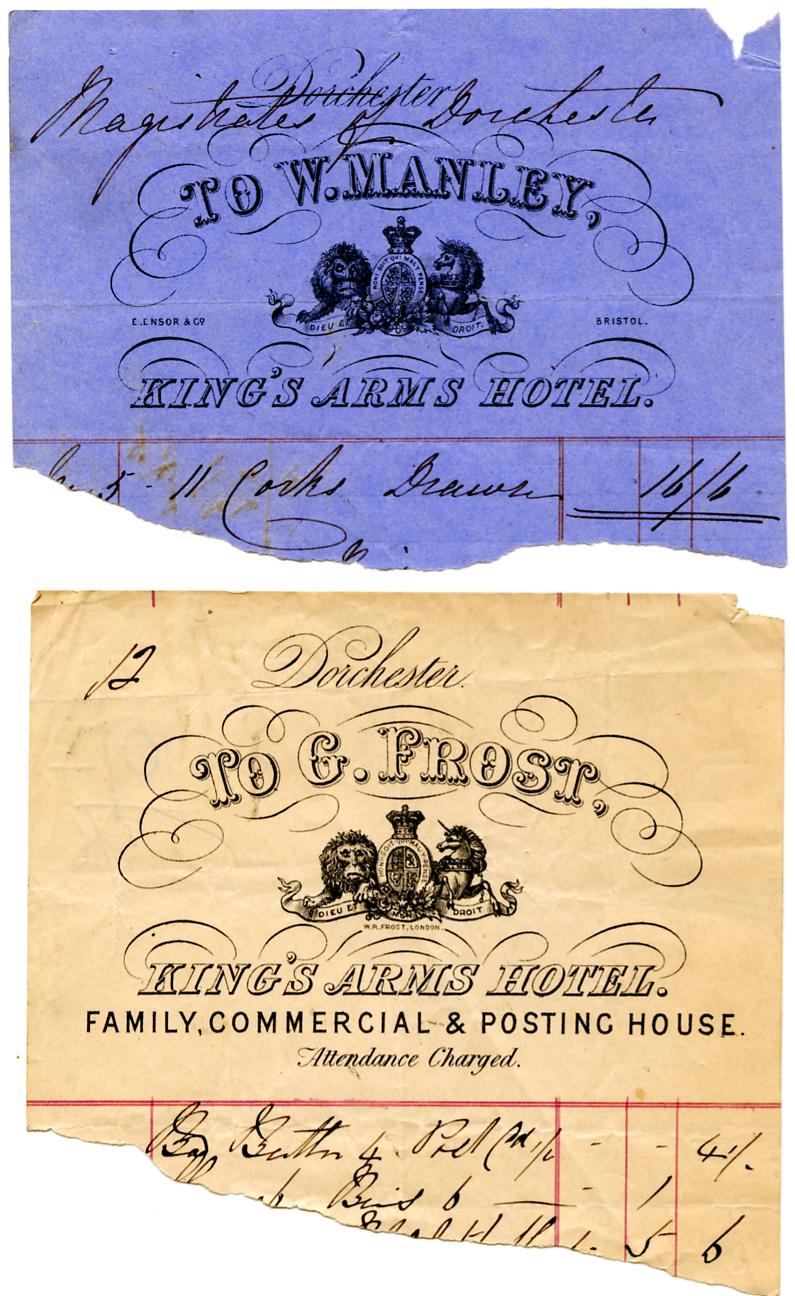 Dorchester
Magistrates of Dorchester
TO W. MANLEY,
HONI SOIT QUI MAL Y PENSE
DIEU ET DROIT.
E. ENSOR & Co BRISTOL.
KING'S ARMS HOTEL.
5 - 11 Corks Drawn 16/6
12 Dorchester.
TO G. FROST,
HONI SOIT QUI MAL Y PENSE
DIEU ET MON DROIT
W.R. FROST, LONDON.
KING'S ARMS HOTEL.
FAMILY, COMMERCIAL & POSTING HOUSE.
Attendance Charged.
4 - -
6 6 - 1
5 6